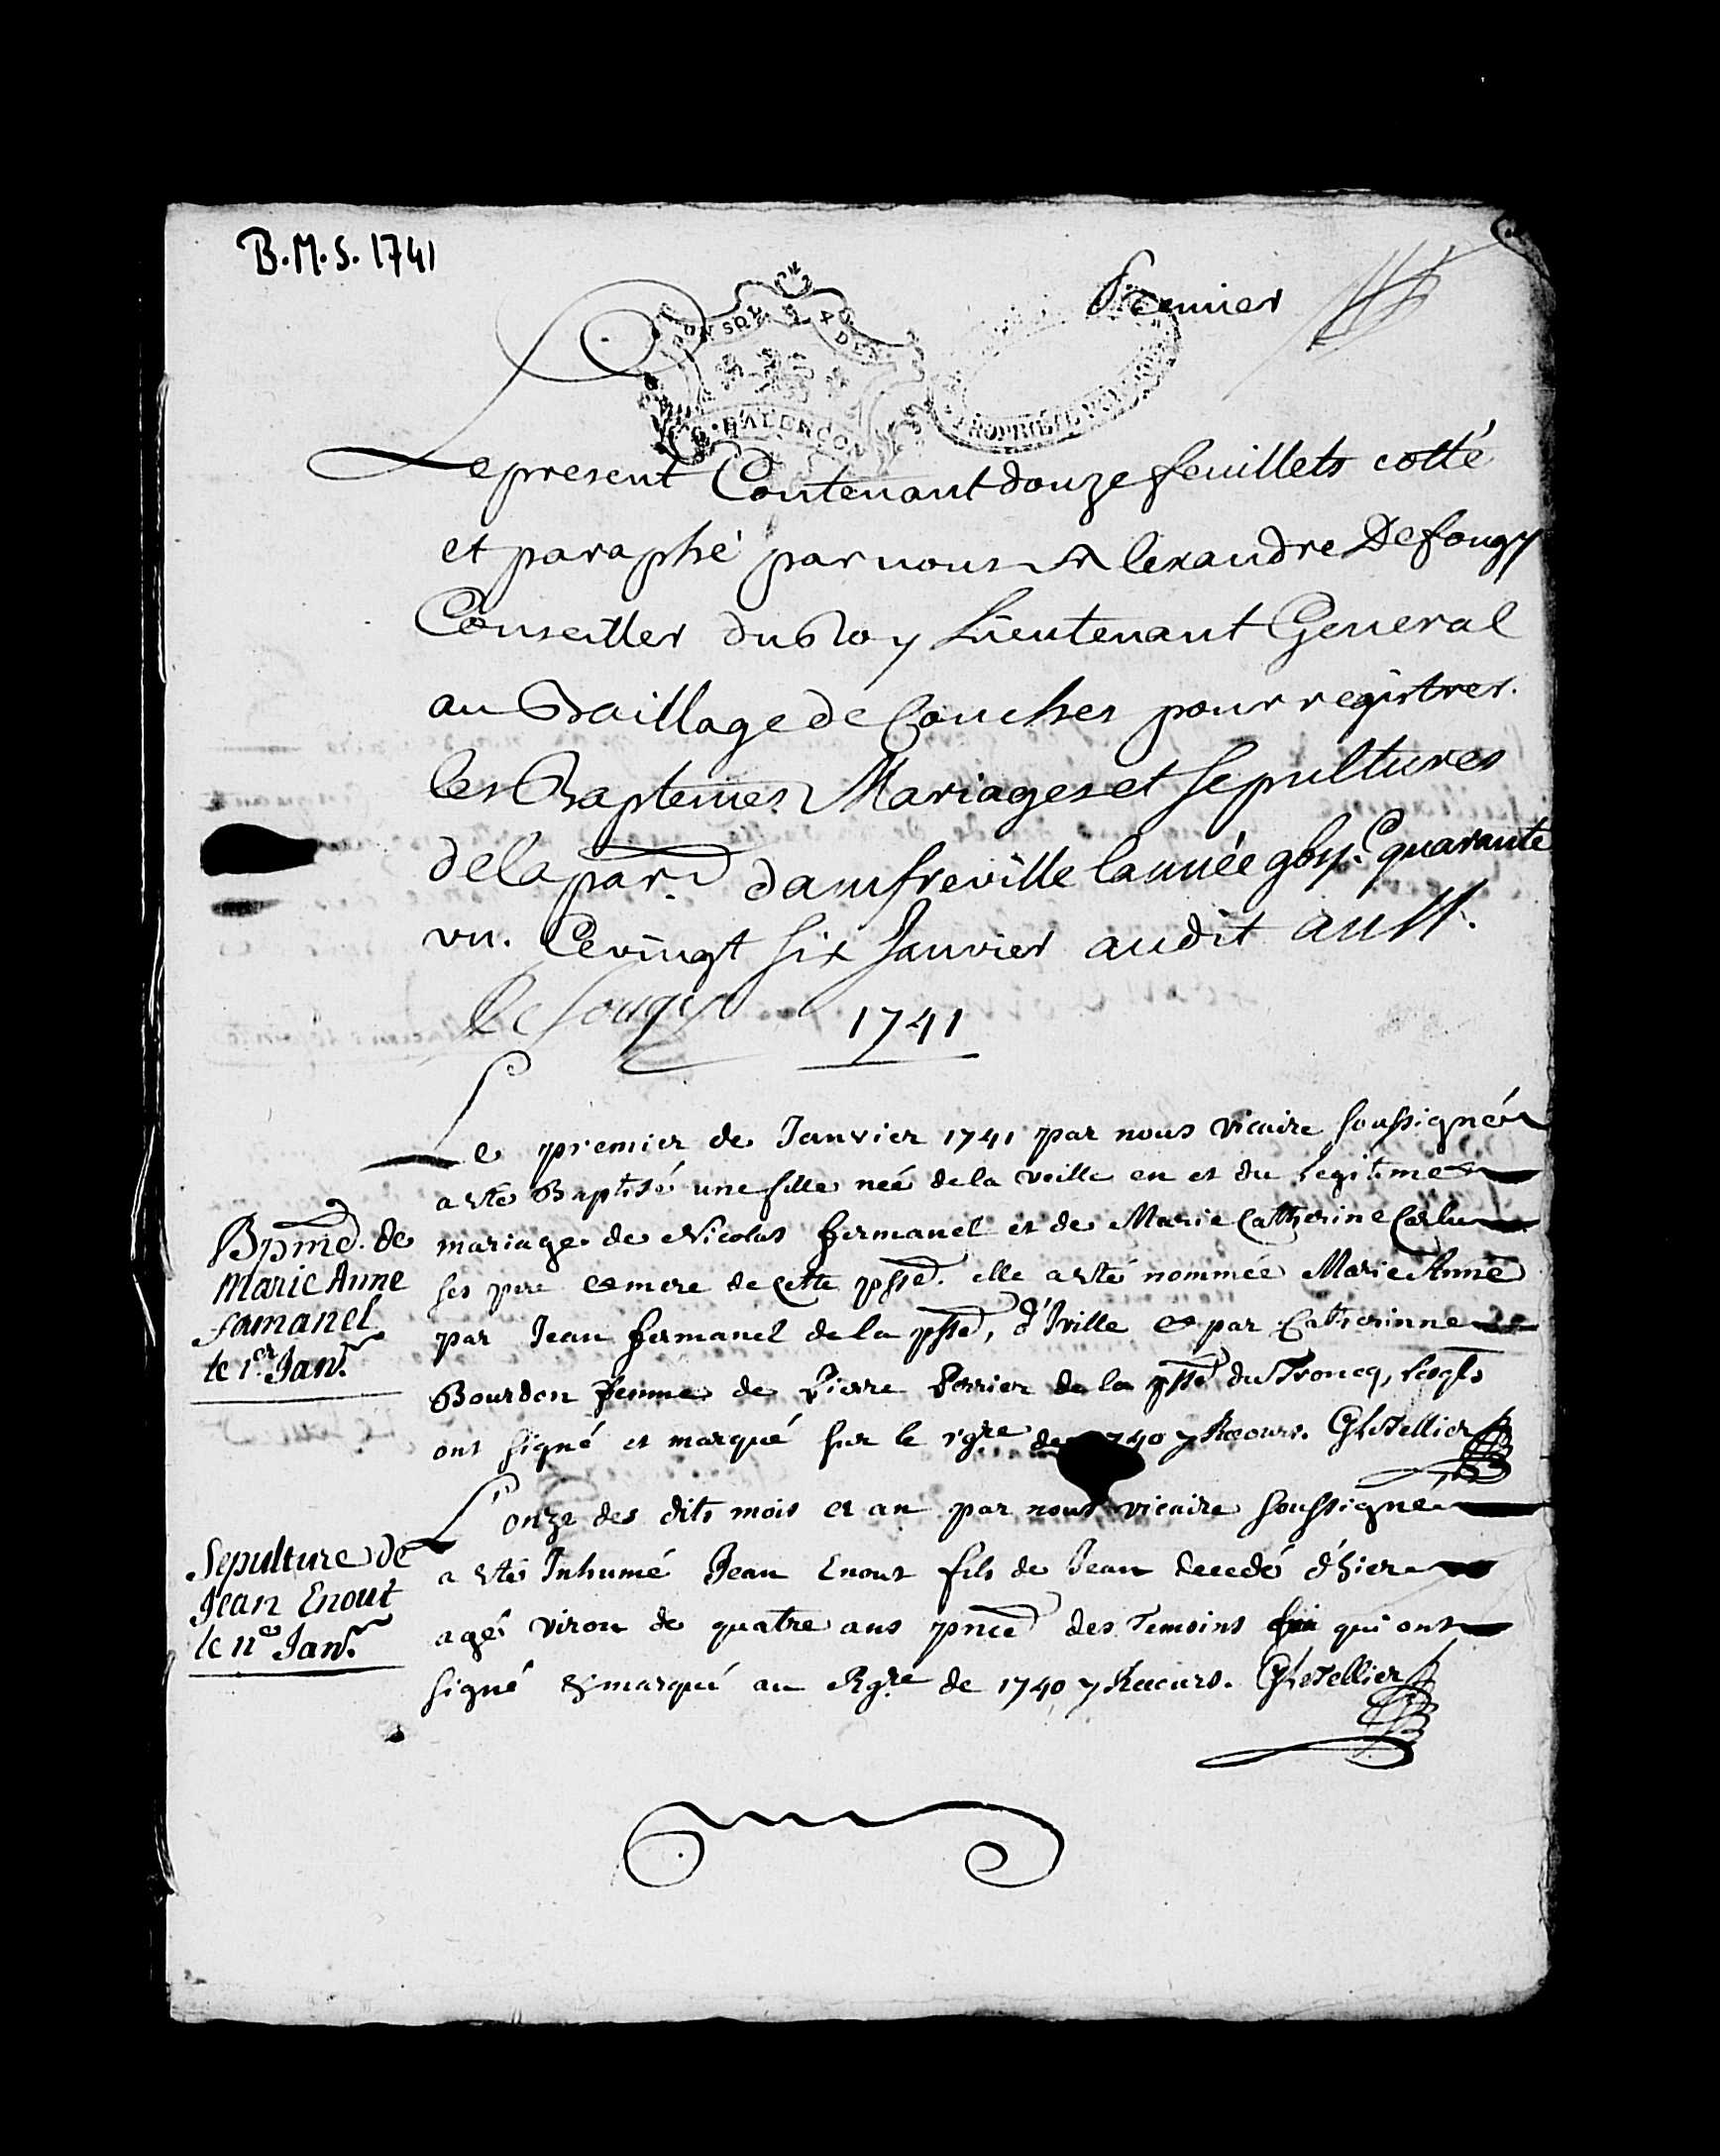 B.M.S. 1741
Premier
UN SOL 4 DEN.
G. D'ALENÇON
PROPRIÉTÉ PU
Le present Contenant douze feuillets cotté
et paraphé par nous Alexandre Defougy
Conseiller du Roy Lieutenant General
au Baillage de Conches pour registrer
les Baptemes Mariages et sepultures
de la par. damfreville lannée quarante
un. Ce vingt six Janvier audit an
Defougy 1741
Le premier de Janvier 1741 par nous vicaire soussigné
a esté Baptisé une fille neé de la veille en et du Legitime
Bpme. de
Marie Anne
famanel
le 1er Janr.
mariage de Nicolas fermanel et de Marie Catherine Carlu
ses pere et mere de cette psse. elle a esté nommée Marie Anne
par Jean fermanel de la psse, d'Iville et par Catherinne
Bourdon femme de Pierre Perrier de la psse du Troncq, lesqls
ont signé et marqué sur le rgre de 1740 y Recours. GLeTellier
L'onze des dits mois et an par nous vicaire soussigne
Sepulture de
Jean Enout
le 11e Janr.
a esté Inhumé Jean Enout fils de Jean decedé d'hier
agé viron de quatre ans pnce des Temoins qui ont
signé & marqué au Rgre de 1740 y Recours. GLeTellier